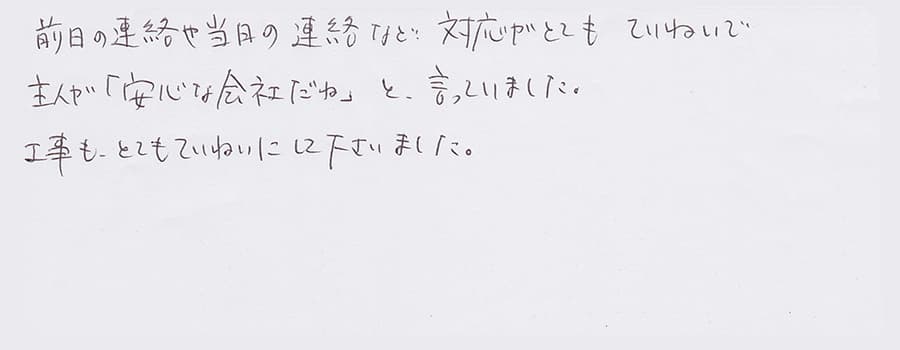 前日の連絡や当日の連絡など対応がとても ていねいで
主人が「安心な会社だね」と、言っていました。
工事も、とてもていねいにして下さいました。